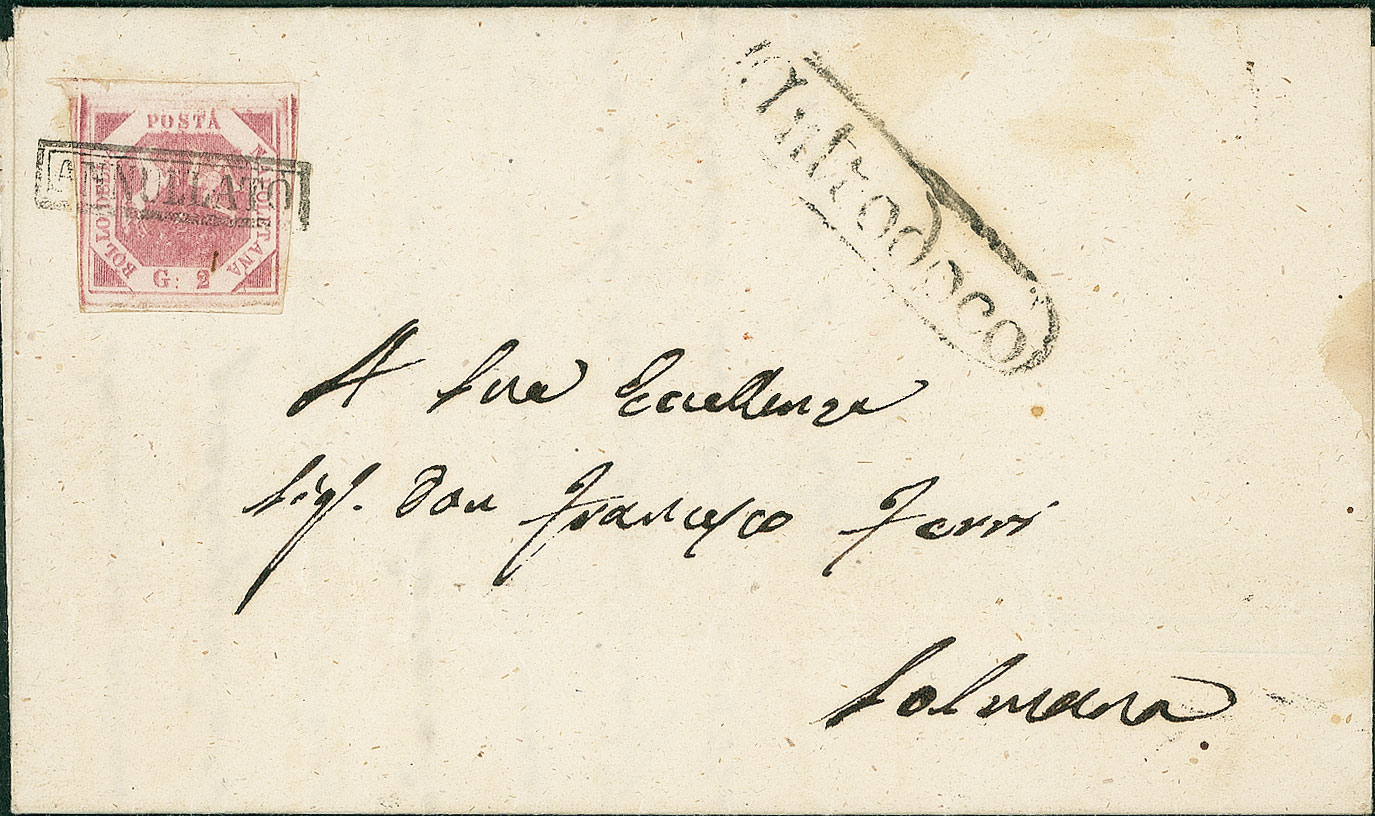 POSTA
NAPOLETANA
BOLLO DELLA
G: 2
ANNULLATO
Introdoco
A Sua Eccellenza
Sigr. Don Francesco Ferri
Solmona